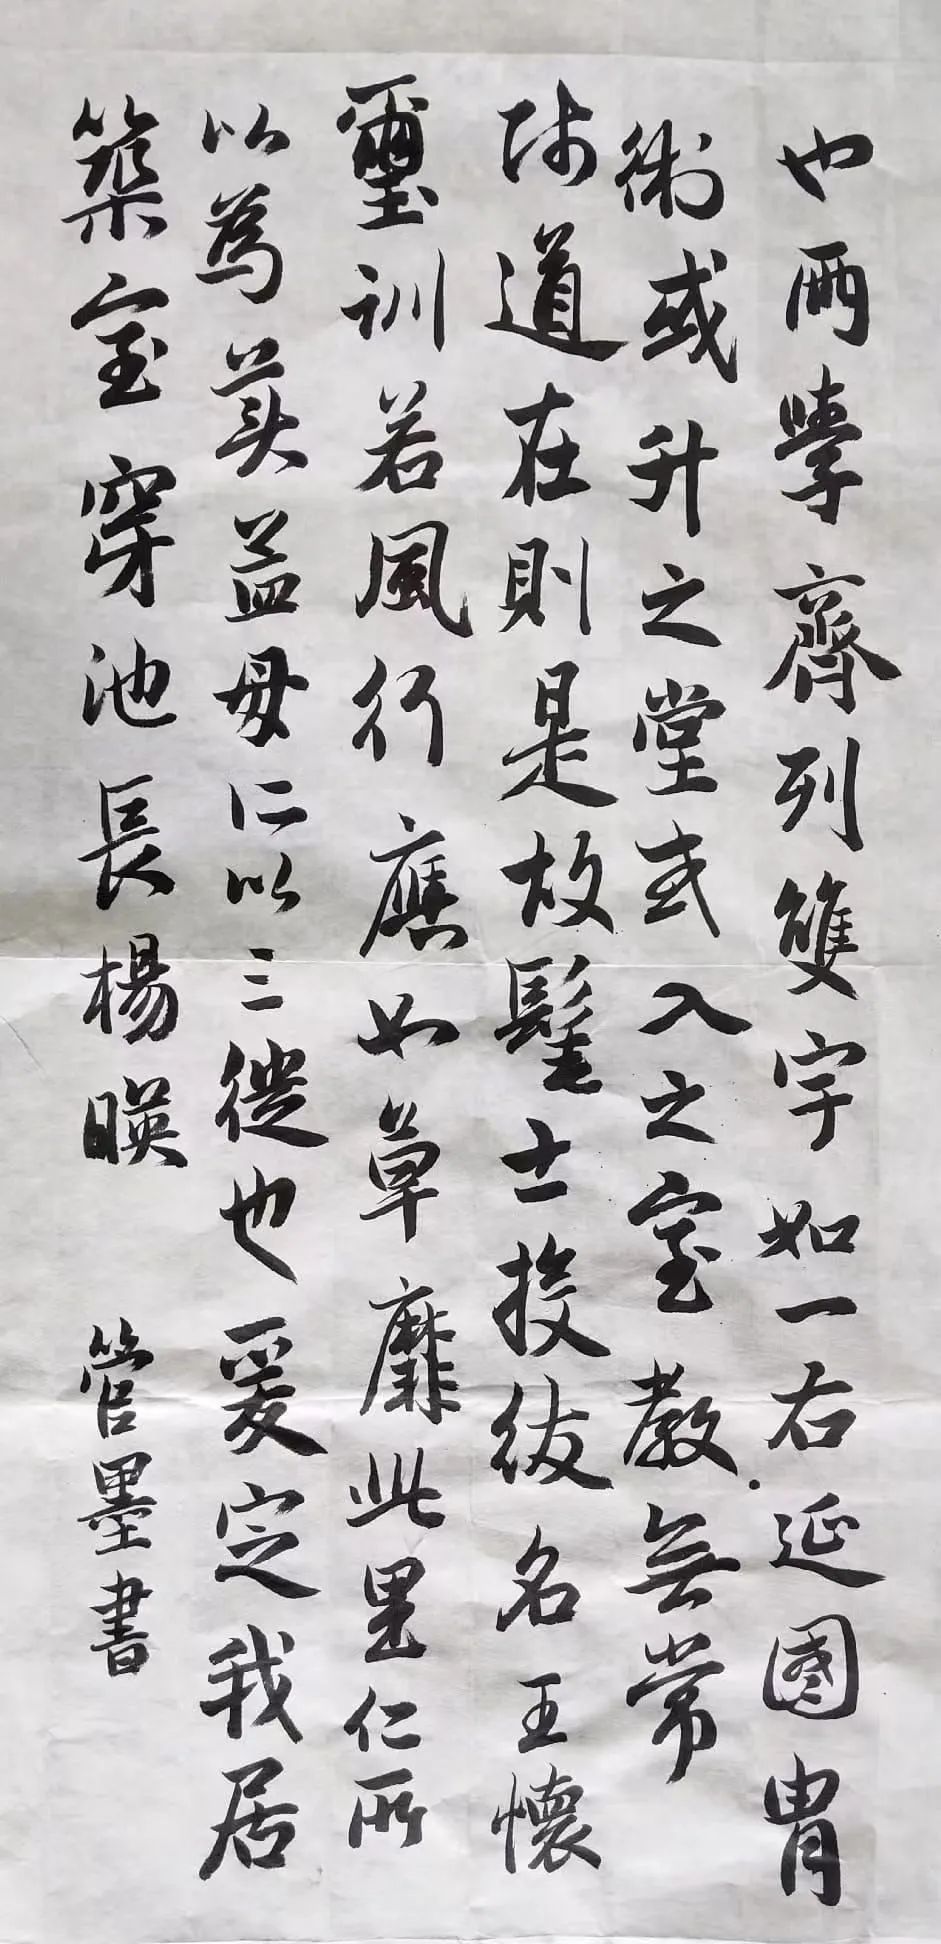 也兩學齊列雙宇如一右延國胄
術或升之堂或入之室教無常
師道在則是故髦士投紱名王懷
璽訓若風行應如草靡此里仁所
以為美孟母所以三徙也爰定我居
築室穿池長楊暎 管墨書